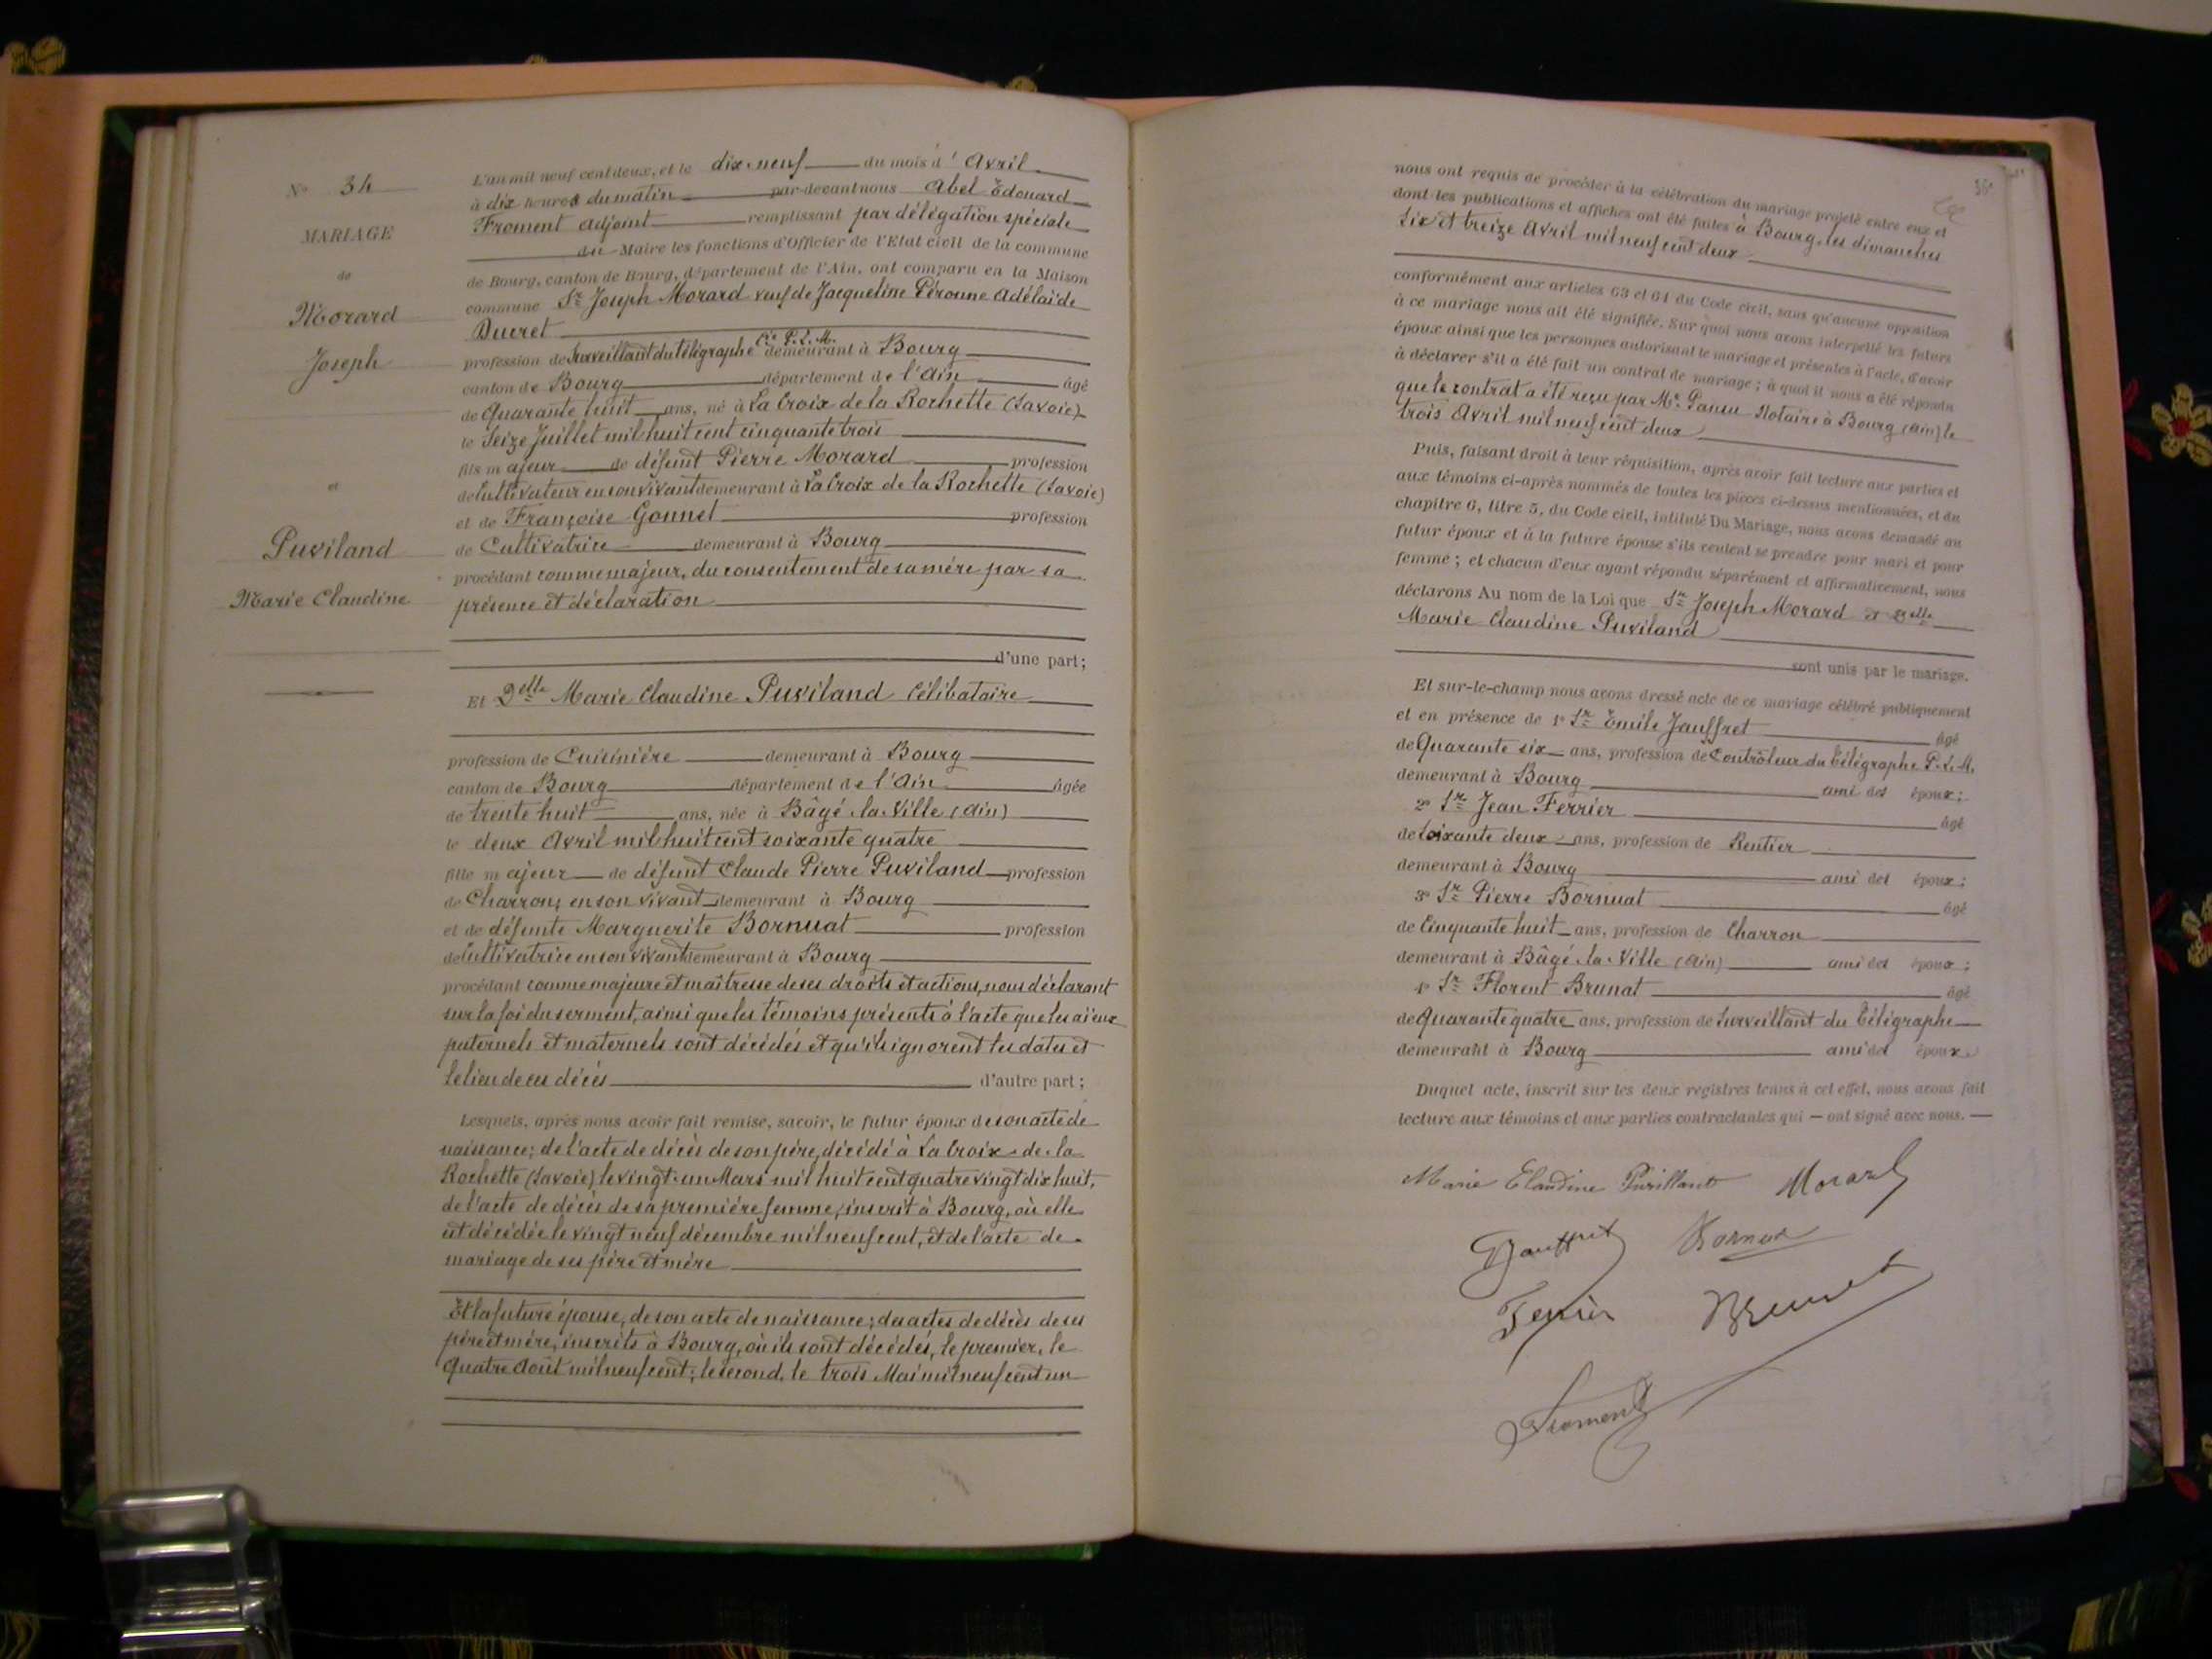 N° 34
MARIAGE
de
Morard
Joseph
et
Puviland
Marie Claudine
L'an mil neuf cent deux, et le dix-neuf du mois d' Avril
à dix heures du matin par-devant nous Abel Edouard
Froment adjoint remplissant par délégation spéciale
du Maire les fonctions d'Officier de l'Etat civil de la commune
de Bourg, canton de Bourg, département de l'Ain, ont comparu en la Maison
commune Sr Joseph Morard veuf de Jacqueline Péronne Adélaïde
Ducret
profession de Surveillant du télégraphe Cie P.L.M. demeurant à Bourg
canton de Bourg département de l'Ain âgé
de Quarante huit ans, né à La Croix de la Rochette (Savoie)
le Seize Juillet mil huit cent cinquante trois
fils majeur de défunt Pierre Morard profession
de Cultivateur en son vivant demeurant à La Croix de la Rochette (Savoie)
et de Françoise Gonnet profession
de Cultivatrice demeurant à Bourg
procédant comme majeur, du consentement de sa mère par sa
présence et déclaration
d'une part;
Et Delle Marie Claudine Puviland Célibataire
profession de Cuisinière demeurant à Bourg
canton de Bourg département de l'Ain âgée
de trente huit ans, née à Bâgé-la-Ville (Ain)
le deux Avril mil huit cent soixante quatre
fille majeur de défunt Claude Pierre Puviland profession
de Charron, en son vivant demeurant à Bourg
et de défunte Marguerite Bornuat profession
de Cultivatrice en son vivant demeurant à Bourg
procédant comme majeure et maîtresse de ses droits et actions, nous déclarant
sur la foi du serment, ainsi que les témoins présents à l'acte que les aïeux
paternels et maternels sont décédés et qu'ils ignorent les dates et
le lieu de ces décès d'autre part;
Lesquels, après nous avoir fait remise, savoir, le futur époux de son acte de
naissance; de l'acte de décès de son père, décédé à La Croix-de-la
Rochette (Savoie) le vingt-un Mars mil huit cent quatre vingt dix huit,
de l'acte de décès de sa première femme, inscrit à Bourg, où elle
est décédée le vingt neuf décembre mil neuf cent, et de l'acte de
mariage de ses père et mère
Et la future épouse, de son acte de naissance; des actes de décès de ses
père et mère, inscrits à Bourg, où ils sont décédés, le premier, le
Quatre Août mil neuf cent; le second, le trois Mai mil neuf cent un
nous ont requis de procéder à la célébration du mariage projeté entre eux et
dont les publications et affiches ont été faites à Bourg, les dimanches
six et treize Avril mil neuf cent deux
conformément aux articles 63 et 64 du Code civil, sans qu'aucune opposition
à ce mariage nous ait été signifiée. Sur quoi nous avons interpellé les futurs
époux ainsi que les personnes autorisant le mariage et présentes à l'acte, d'avoir
à déclarer s'il a été fait un contrat de mariage; à quoi il nous a été répondu
que le contrat a été reçu par Me Notaire à Bourg (Ain) le
trois Avril mil neuf cent deux
Puis, faisant droit à leur réquisition, après avoir fait lecture aux parties et
aux témoins ci-après nommés de toutes les pièces ci-dessus mentionnées, et du
chapitre 6, titre 5, du Code civil, intitulé Du Mariage, nous avons demandé au
futur époux et à la future épouse s'ils veulent se prendre pour mari et pour
femme; et chacun d'eux ayant répondu séparément et affirmativement, nous
déclarons Au nom de la Loi que Sr Joseph Morard et Delle
Marie Claudine Puviland
sont unis par le mariage.
Et sur-le-champ nous avons dressé acte de ce mariage célébré publiquement
et en présence de 1° Sr Emile Jauffret âgé
de Quarante six ans, profession de Contrôleur du Télégraphe P.L.M.
demeurant à Bourg ami des époux;
2° Sr Jean Ferrier âgé
de soixante deux ans, profession de Rentier
demeurant à Bourg ami des époux;
3° Sr Pierre Bornuat âgé
de Cinquante huit ans, profession de Charron
demeurant à Bâgé-la-Ville (Ain) ami des époux;
4° Sr Florent Brunat âgé
de Quarante quatre ans, profession de Surveillant du Télégraphe
demeurant à Bourg ami des époux
Duquel acte, inscrit sur les deux registres tenus à cet effet, nous avons fait
lecture aux témoins et aux parties contractantes qui — ont signé avec nous. —
Marie Claudine Puvilland Morard
Jauffret Bornuat
Ferrier Brunat
Froment